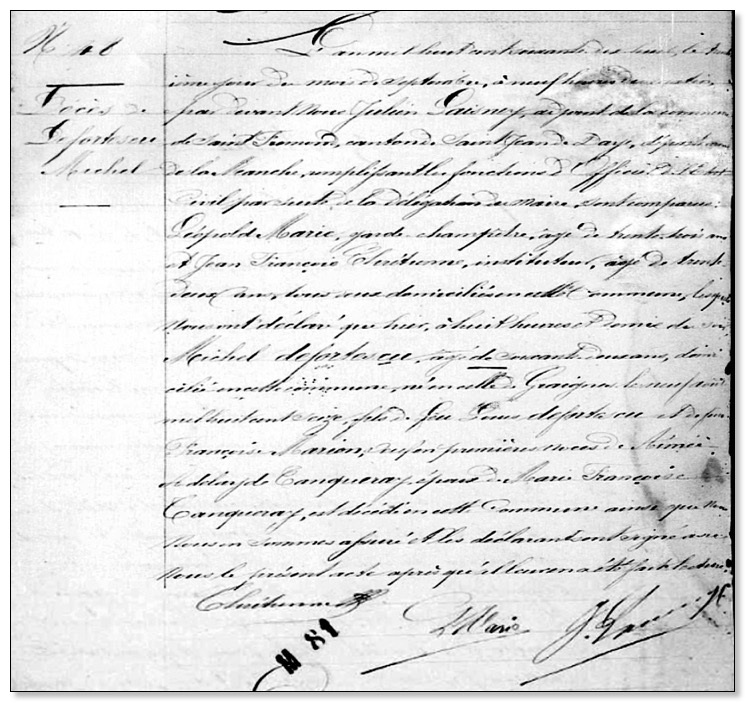 N°
Décès de
Defortescu
Michel
L'an mil huit cent soixante dix huit, le
ième jour du mois de septembre, à neuf heures du matin,
par devant nous Julien Laisney, adjoint de la commune
de Saint Fromond, canton de Saint Jean de Daye, départ
de la Manche, remplissant les fonctions d'Officier de l'Etat
Civil par suite de la délégation du maire, sont comparus:
Léopold Marie, garde-champêtre, âgé de trente trois ans
et Jean François Chrétienne, instituteur, âgé de trente
deux ans, tous deux domiciliés en cette Commune, lesquels
Nous ont déclaré que hier, à huit heures et demie du soir
Michel defortescu, âgé de soixante deux ans, domi
cilié en cette commune, né en celle de Graignes le neuf août
mil huit cent seize, fils de feu Louis defortescu et de feue
Françoise Marion, veuf en premières noces de Aimée
de Canqueray, époux de Marie Françoise
Canqueray, est décédé en cette Commune ainsi que nous
nous en sommes assuré et les déclarants ont signé avec
nous le présent acte après qu'il leur en a été fait lecture
Chrétienne
L Marie
J. Laisney
M 81